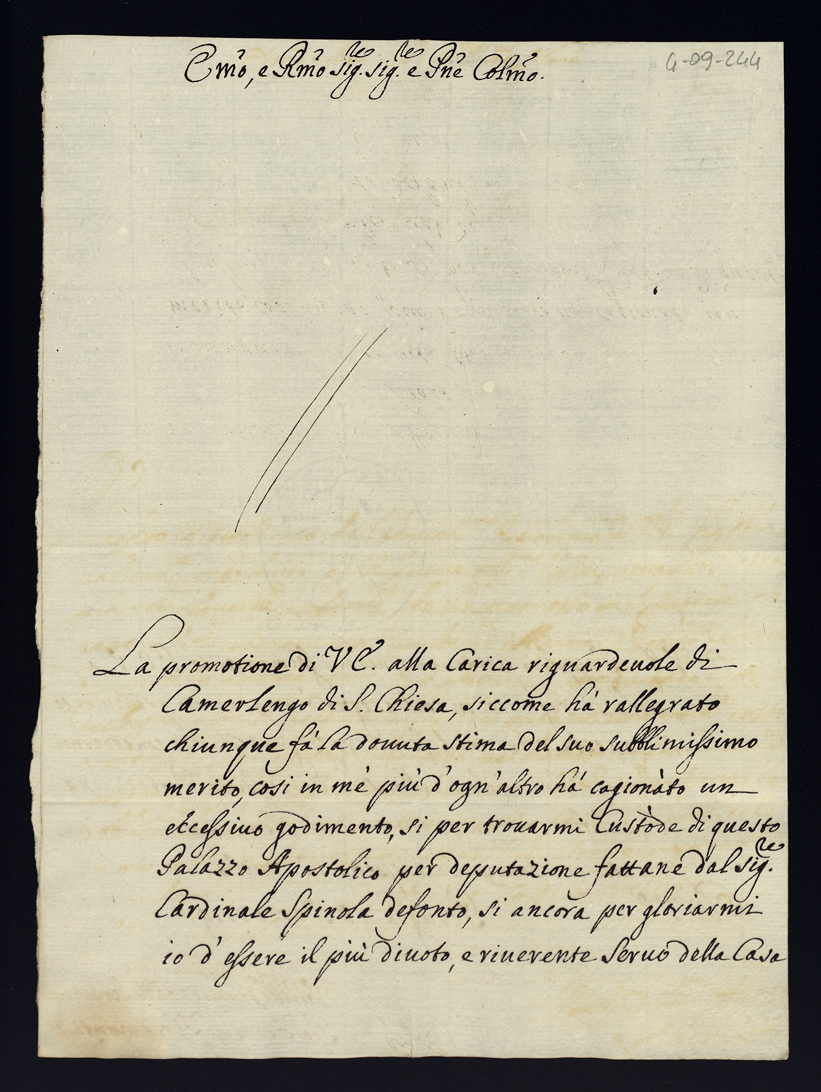 4-09-244
Emo, e Rmo sig.re sig.re e Pne Colmo.
La promotione di V E. alla Carica riguardeuole di
Camerlengo di S. Chiesa, siccome há rallegrato
chiunque fá la douuta stima del suo subblimissimo
merito, cosi in mè più d'ogn'altro há cagionàto un
eccessiuo godimento, si per trouarmi Custòde di questo
Palazzo Apostolico per deputazione fattane dal sig.re
Cardinale Spinola defonto, si ancora per gloriarmi
io d'essere il più diuoto, e riuerente seruo della Casa